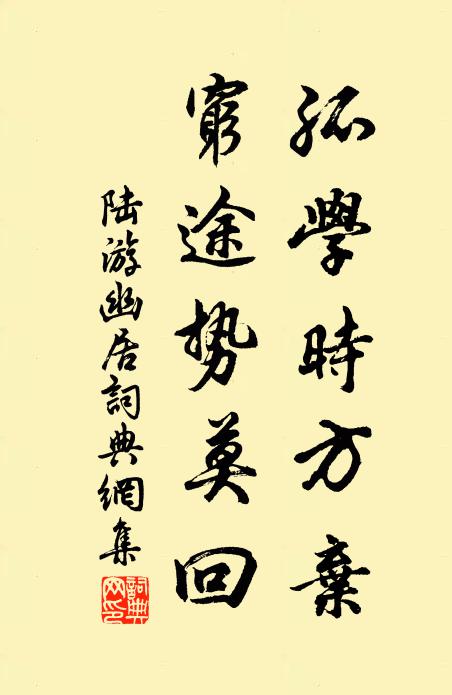 孤學時方棄
窮途势莫回
陆游幽居詞典網集
詞典网印